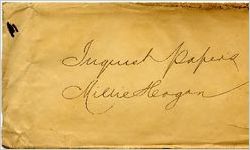 Inquest Papers
Millie Hogan